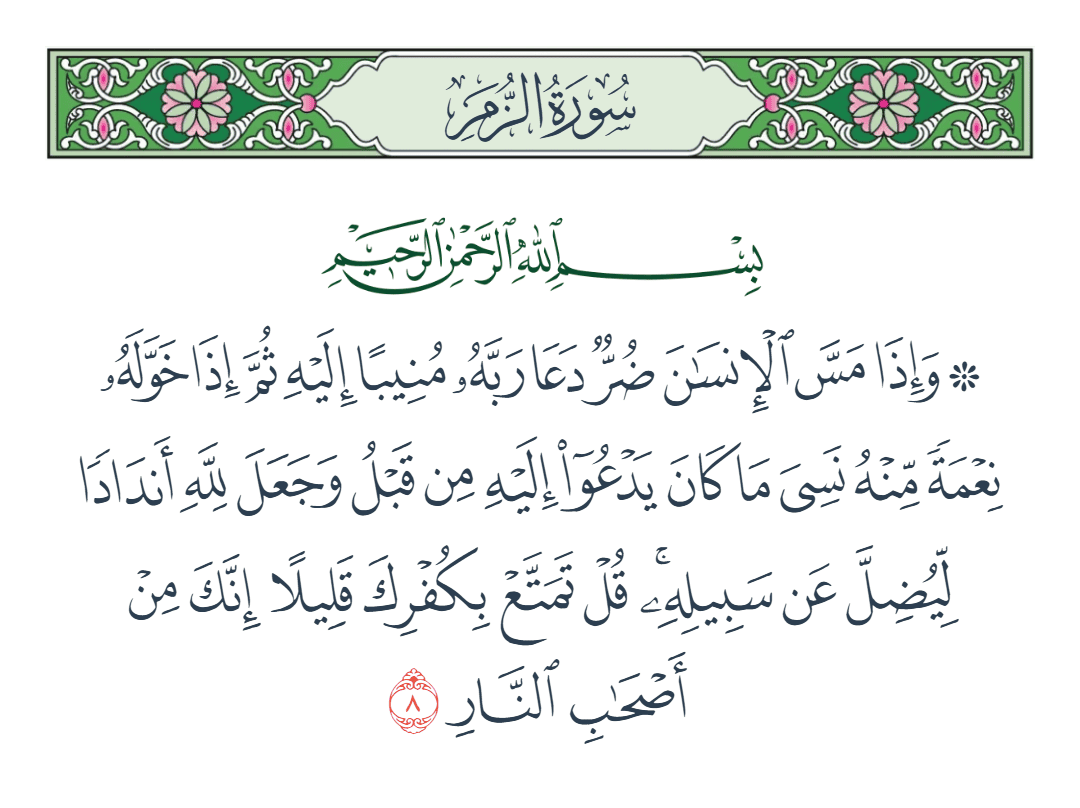 سُورَةُ الزُّمَرِ
بِسْمِ ٱللَّهِ ٱلرَّحْمَٰنِ ٱلرَّحِيمِ
۞ وَإِذَا مَسَّ ٱلْإِنسَٰنَ ضُرٌّ دَعَا رَبَّهُۥ مُنِيبًا إِلَيْهِ ثُمَّ إِذَا خَوَّلَهُۥ
نِعْمَةً مِّنْهُ نَسِىَ مَا كَانَ يَدْعُوٓا۟ إِلَيْهِ مِن قَبْلُ وَجَعَلَ لِلَّهِ أَندَادًا
لِّيُضِلَّ عَن سَبِيلِهِۦ ۚ قُلْ تَمَتَّعْ بِكُفْرِكَ قَلِيلًا إِنَّكَ مِنْ
أَصْحَٰبِ ٱلنَّارِ ٨